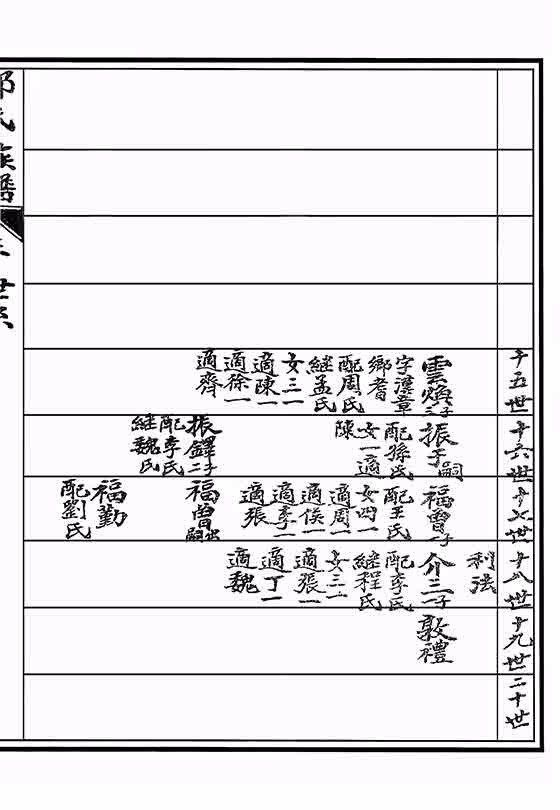 十五世
雲煥二子
字漢章
鄉耆
配周氏
繼孟氏
女三一
適陳一
適徐一
適齊
十六世
振子嗣
配孫氏
女一適
陳
振鐸二子
配李氏
繼魏氏
十七世
福曾一子
配王氏
女四一
適周一
適侯一
適李一
適張
福曾出嗣
福勤
配劉氏
十八世
利法
介三一子
配李氏
繼程氏
女三一
適張一
適丁一
適魏
十九世
敦禮
二十世
氏族譜
世系